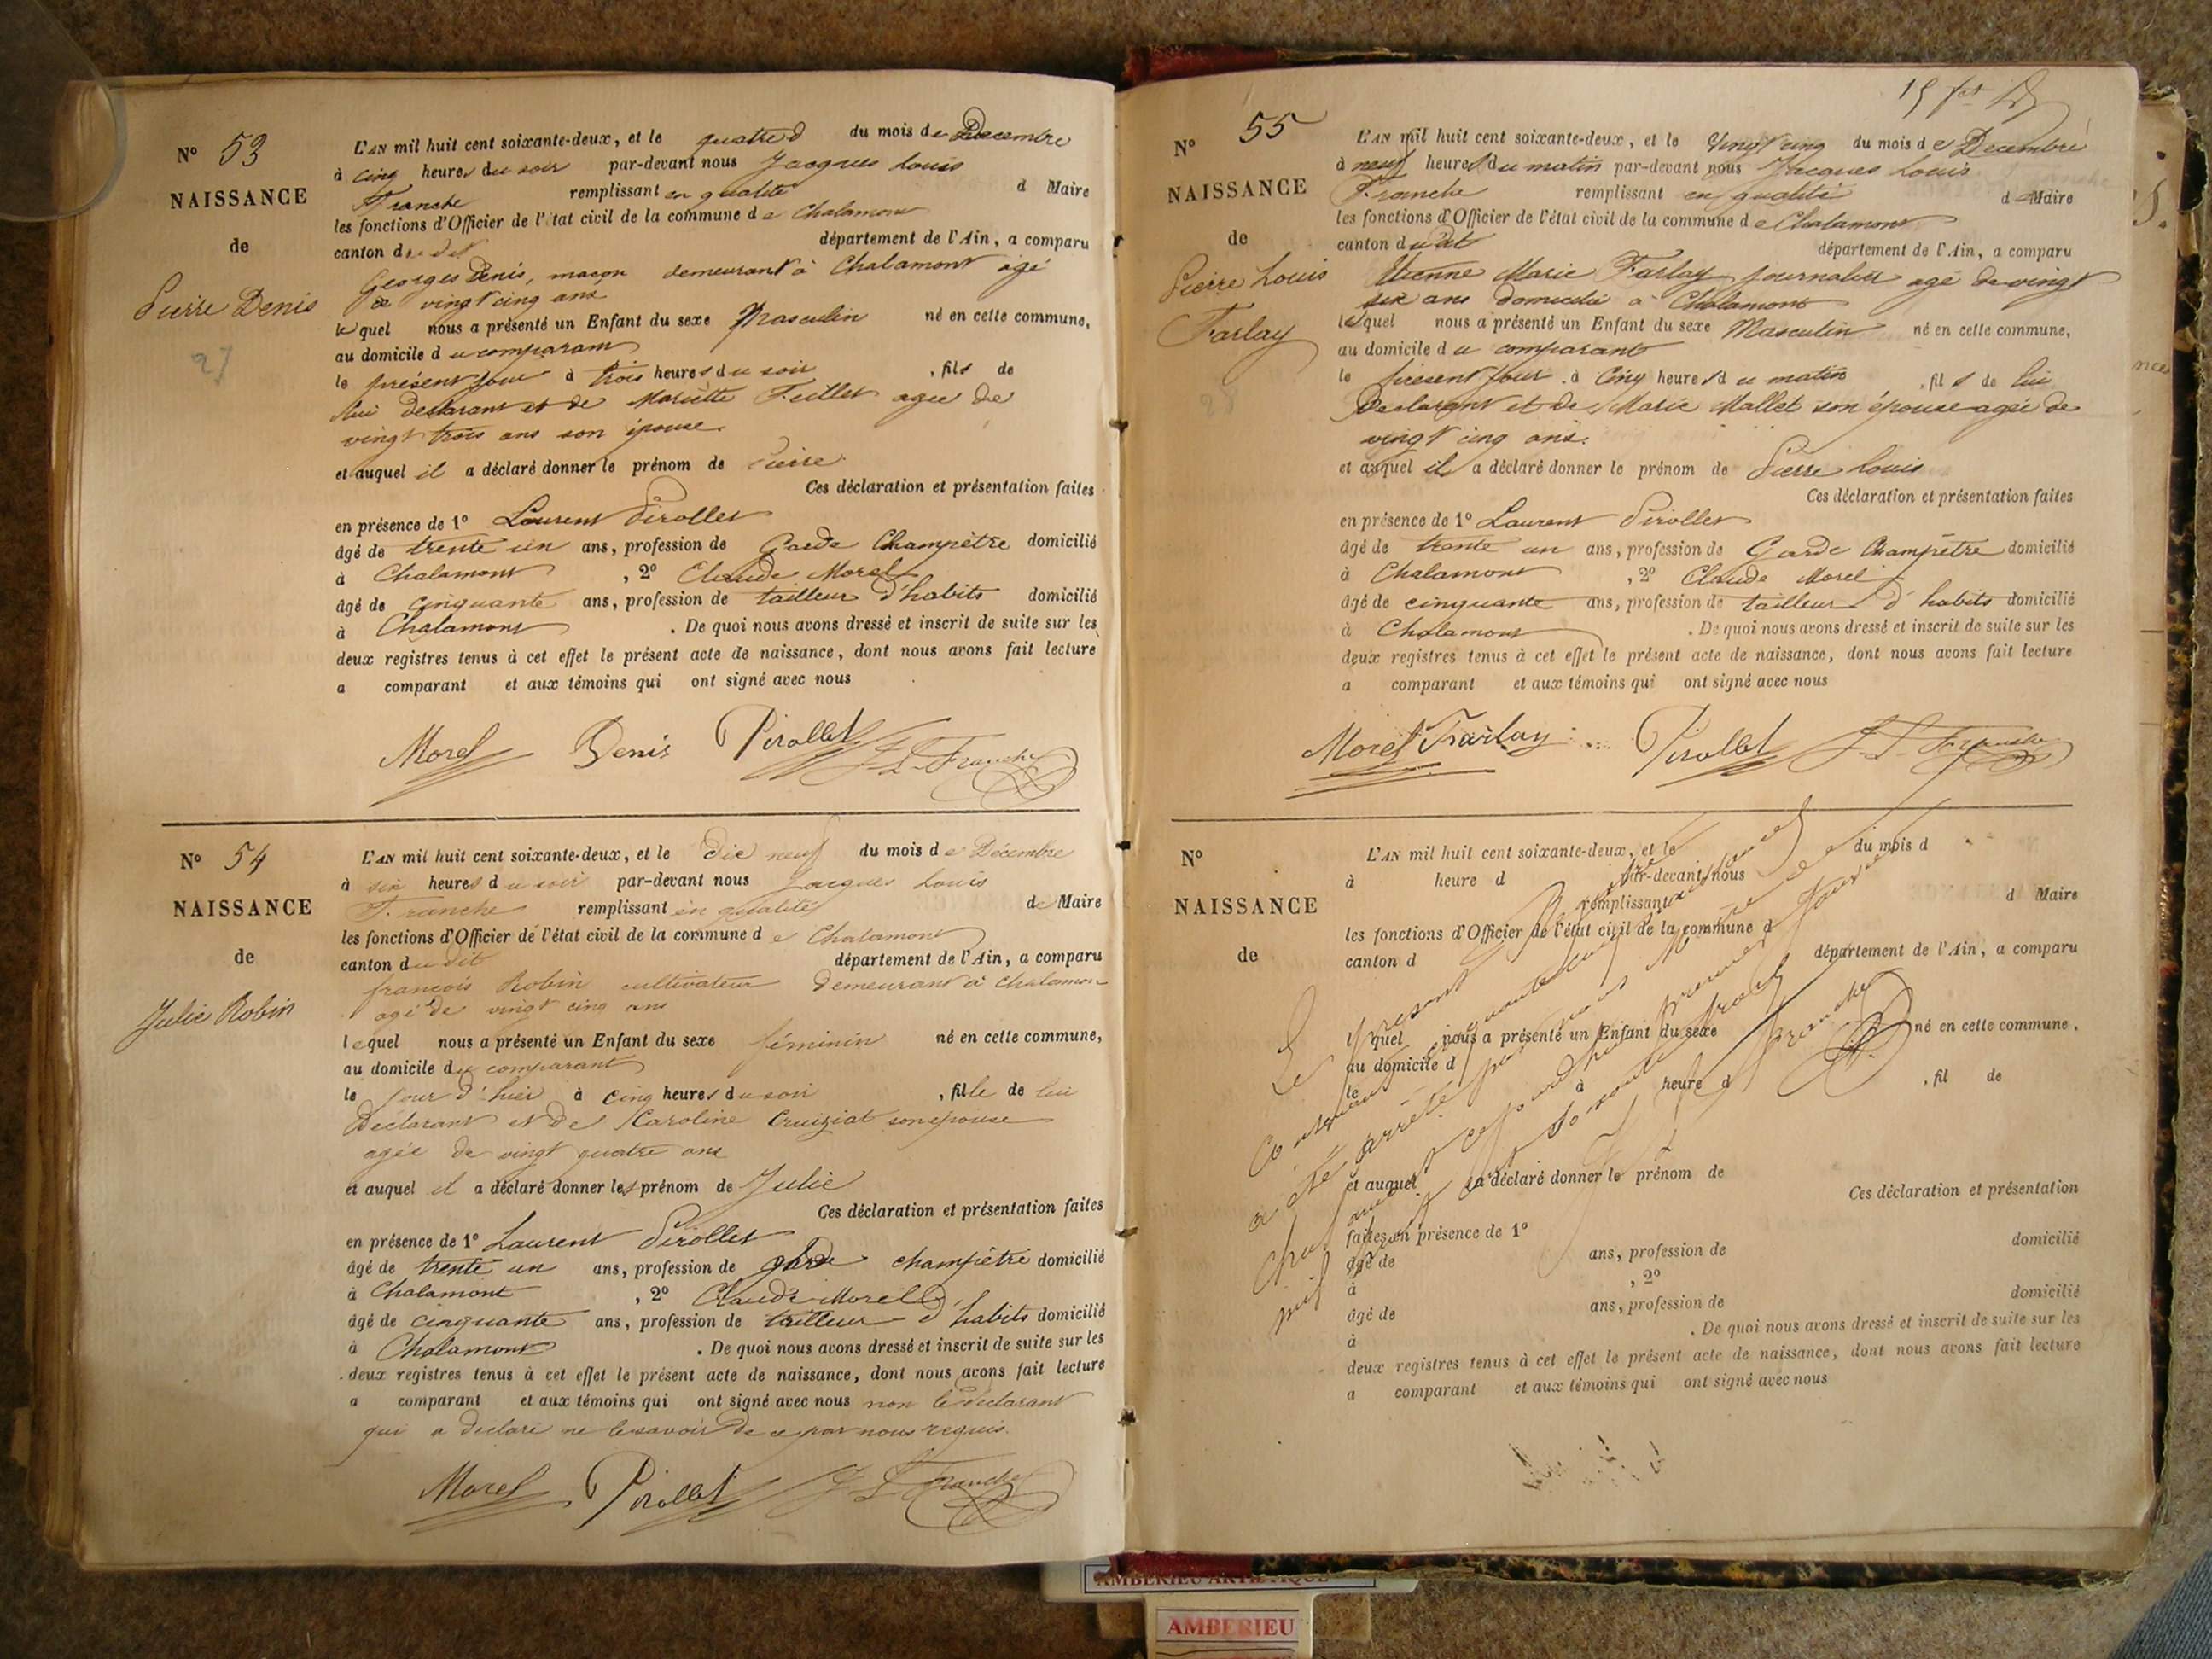 N° 53
NAISSANCE
de
Pierre Denis
27
L'AN mil huit cent soixante-deux, et le quatre du mois de Decembre
à cinq heures du soir par-devant nous Jacques Louis
Franche remplissant en qualité d Maire
les fonctions d'Officier de l'état civil de la commune de Chalamont
canton du dit département de l'Ain, a comparu
Georges Denis, maçon demeurant à Chalamont agé
de vingt cinq ans
lequel nous a présenté un Enfant du sexe Masculin né en cette commune,
au domicile du comparant
le présent jour à trois heures du soir , fils de
lui déclarant et de Mariette Feillet agée de
vingt trois ans son épouse
et auquel il a déclaré donner le prénom de Pierre
Ces déclaration et présentation faites
en présence de 1° Laurent Pirollet
âgé de trente un ans, profession de Garde Champêtre domicilié
à Chalamont , 2° Claude Morel
âgé de cinquante ans, profession de tailleur d'habits domicilié
à Chalamont . De quoi nous avons dressé et inscrit de suite sur les
deux registres tenus à cet effet le présent acte de naissance, dont nous avons fait lecture
a comparant et aux témoins qui ont signé avec nous
Morel Denis Pirollet J. L. Franche
N° 54
NAISSANCE
de
Julie Robin
L'AN mil huit cent soixante-deux, et le dix neuf du mois de Décembre
à six heures du soir par-devant nous Jacques Louis
Franche remplissant en qualité de Maire
les fonctions d'Officier de l'état civil de la commune de Chalamont
canton du dit département de l'Ain, a comparu
françois Robin cultivateur demeurant à Chalamont
agé de vingt cinq ans
lequel nous a présenté un Enfant du sexe féminin né en cette commune,
au domicile du comparant
le jour d'hier à cinq heures du soir , fille de lui
déclarant et de Caroline Cruiziat son épouse
agée de vingt quatre ans
et auquel il a déclaré donner les prénom de Julie
Ces déclaration et présentation faites
en présence de 1° Laurent Pirollet
âgé de trente un ans, profession de garde champêtre domicilié
à Chalamont , 2° Claude Morel
âgé de cinquante ans, profession de tailleur d'habits domicilié
à Chalamont . De quoi nous avons dressé et inscrit de suite sur les
deux registres tenus à cet effet le présent acte de naissance, dont nous avons fait lecture
a comparant et aux témoins qui ont signé avec nous non le déclarant
qui a déclaré ne le savoir de ce par nous requis.
Morel Pirollet J L Franche
N° 55
NAISSANCE
de
Pierre Louis
Farlay
28
L'AN mil huit cent soixante-deux, et le Vingt cinq du mois de Decembre
à neuf heures du matin par-devant nous Jacques Louis
Franche remplissant en qualité de Maire
les fonctions d'Officier de l'état civil de la commune de Chalamont
canton du dit département de l'Ain, a comparu
Etienne Marie Farlay journalier agé de vingt
six ans domicilié à Chalamont
lequel nous a présenté un Enfant du sexe Masculin né en cette commune,
au domicile du comparant
le présent jour à Cinq heures du matin , fils de lui
Déclarant et de Marie Mallet son épouse agée de
vingt cinq ans.
et auquel il a déclaré donner le prénom de Pierre Louis
Ces déclaration et présentation faites
en présence de 1° Laurent Pirollet
âgé de trente un ans, profession de Garde Champêtre domicilié
à Chalamont , 2° Claude Morel
âgé de cinquante ans, profession de tailleur d'habits domicilié
à Chalamont . De quoi nous avons dressé et inscrit de suite sur les
deux registres tenus à cet effet le présent acte de naissance, dont nous avons fait lecture
a comparant et aux témoins qui ont signé avec nous
Morel Farlay Pirollet J. L. Franche
N°
NAISSANCE
de
L'AN mil huit cent soixante-deux, et le du mois d
à heure d par-devant nous
remplissant d Maire
les fonctions d'Officier de l'état civil de la commune d
canton d département de l'Ain, a comparu
l quel nous a présenté un Enfant du sexe né en cette commune,
au domicile d
le à heure d , fil de
et auquel a déclaré donner le prénom de
Ces déclaration et présentation
faites en présence de 1°
âgé de ans, profession de domicilié
à , 2°
âgé de ans, profession de domicilié
à . De quoi nous avons dressé et inscrit de suite sur les
deux registres tenus à cet effet le présent acte de naissance, dont nous avons fait lecture
a comparant et aux témoins qui ont signé avec nous
Le présent Registre
Contenant cinquante cinq naissances
a été arrêté par nous Maire de
Chalamont cejourd'hui premier Janvier
mil huit soixante trois
J L Franche
AMBERIEU